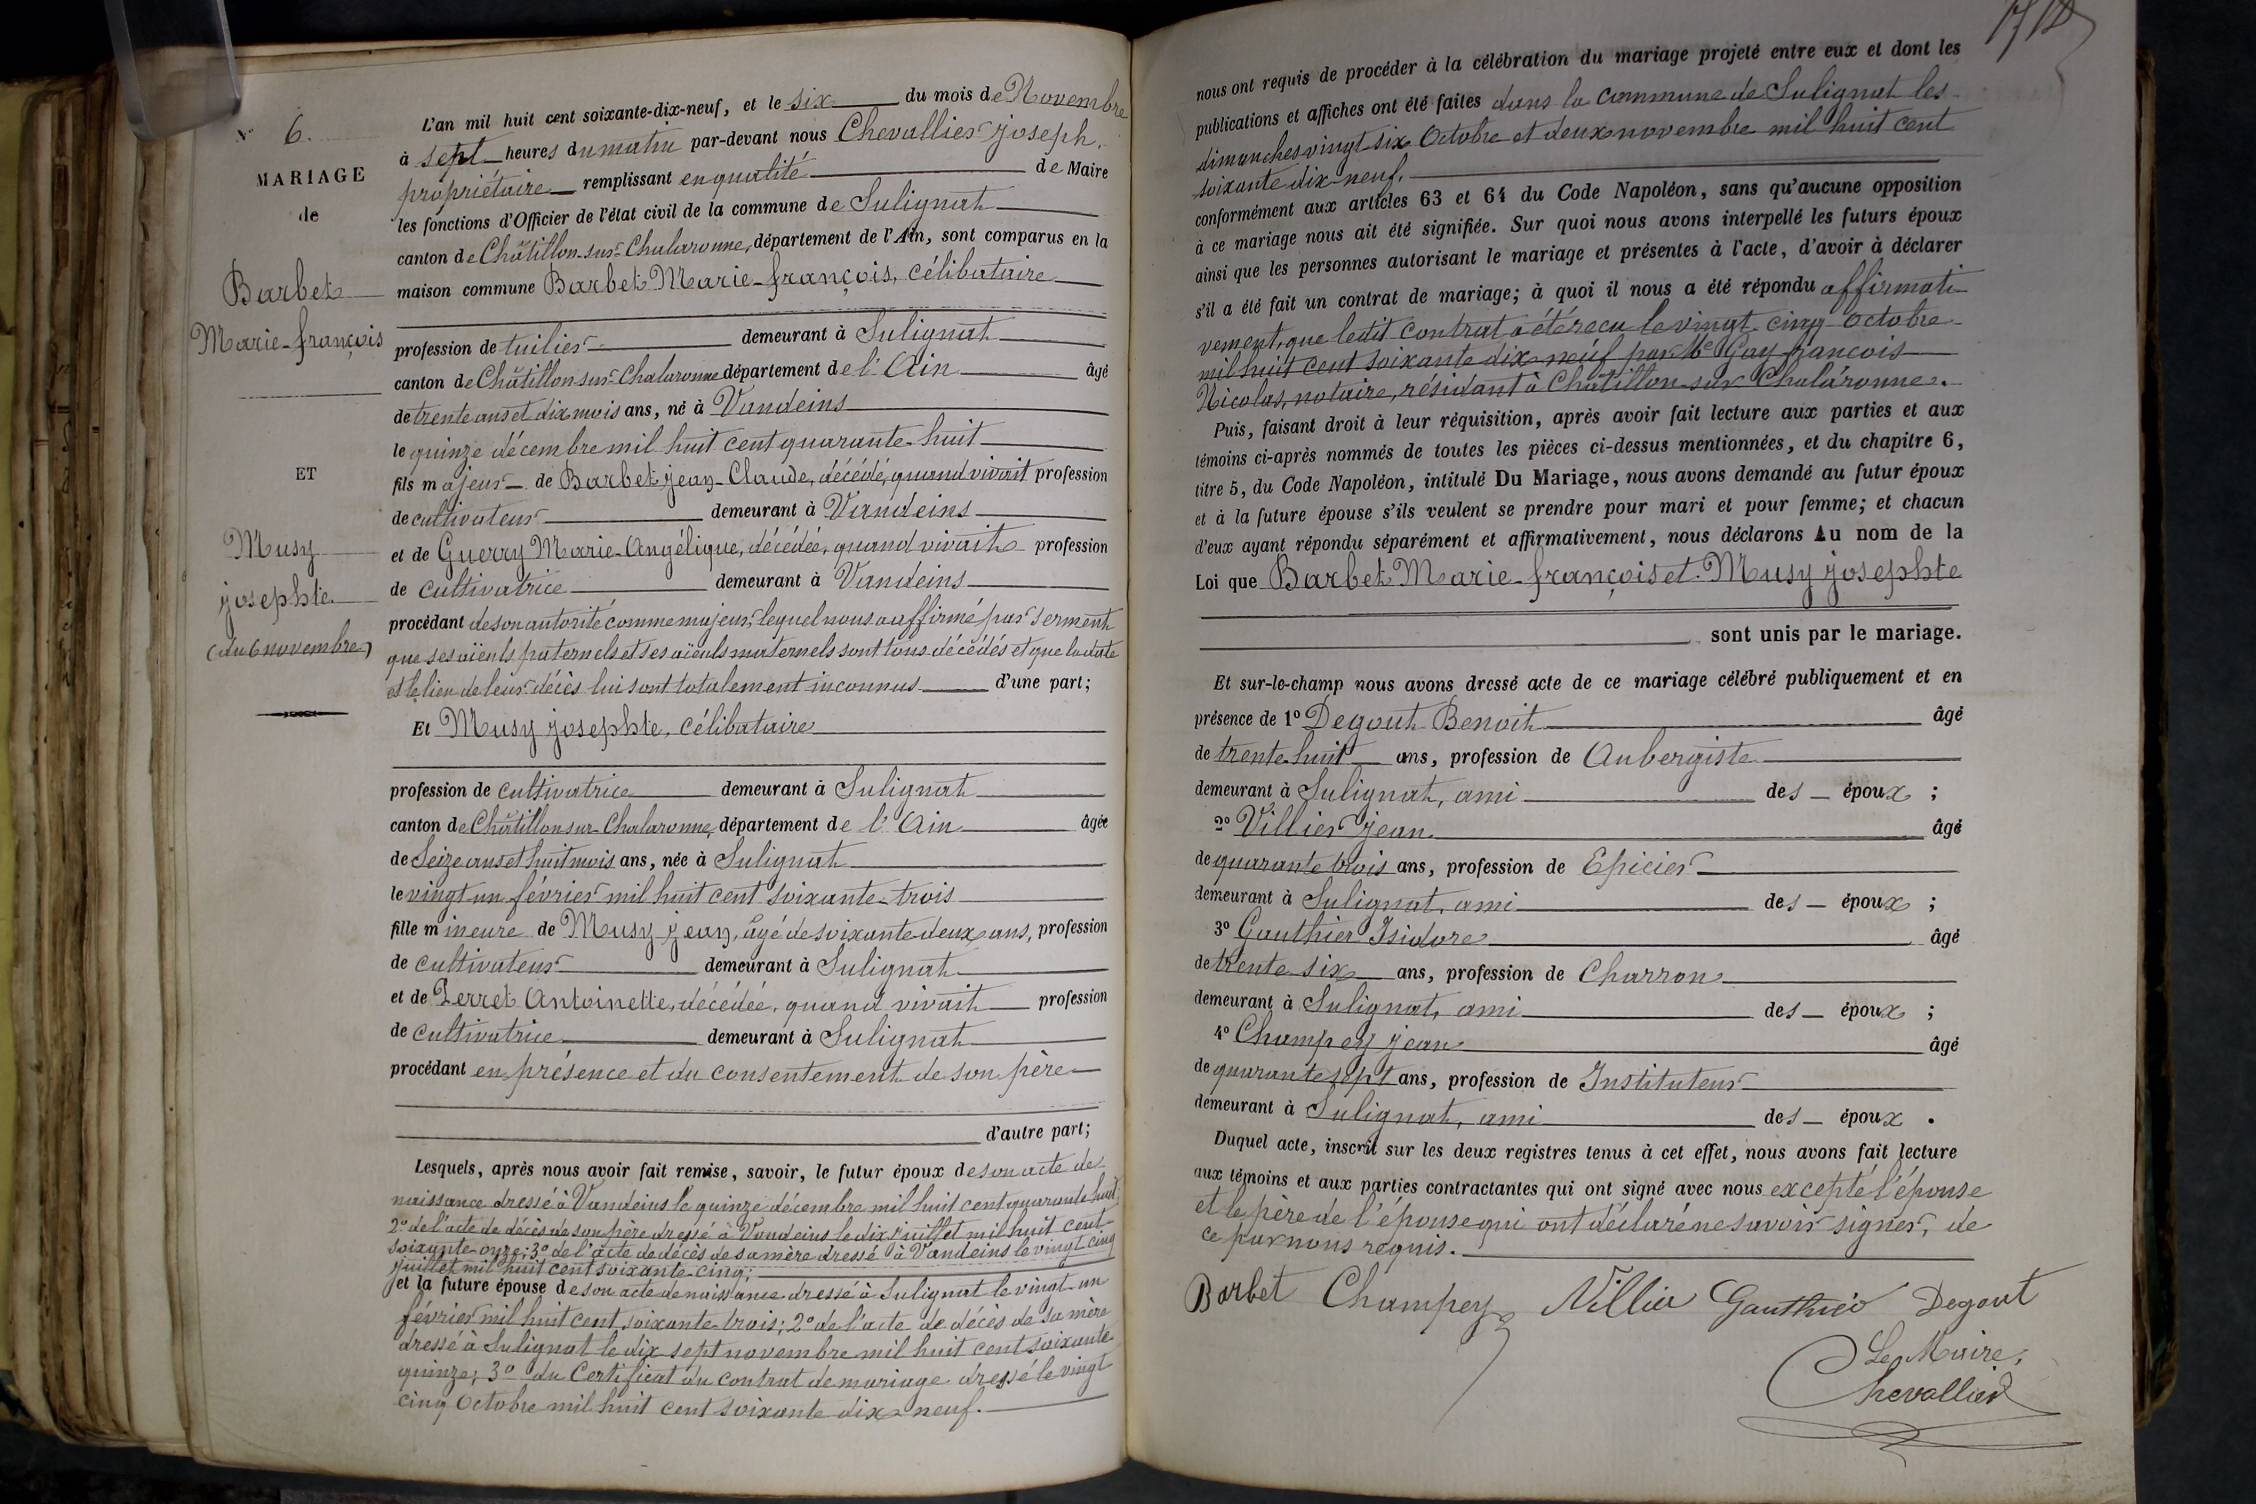 N° 6.
MARIAGE
de
Barbet
Marie-françois
ET
Musy
josephte
(du 6 novembre)
L'an mil huit cent soixante-dix-neuf, et le six du mois de Novembre
à sept heures du matin par-devant nous Chevallier joseph,
propriétaire remplissant en qualité de Maire
les fonctions d'Officier de l'état civil de la commune de Sulignat
canton de Châtillon-sur-Chalaronne, département de l'Ain, sont comparus en la
maison commune Barbet Marie-françois, célibataire
profession de tuilier demeurant à Sulignat
canton de Châtillon sur-Chalaronne département de l'Ain âgé
de trente ans et dix mois ans, né à Vandeins
le quinze décembre mil huit cent quarante-huit
fils majeur de Barbet jean-Claude, décédé, quand vivait profession
de cultivateur demeurant à Vandeins
et de Guerry Marie-Angélique, décédée, quand vivait profession
de cultivatrice demeurant à Vandeins
procédant de son autorité comme majeur, lequel nous a affirmé par serment
que ses aïeuls paternels et ses aïeuls maternels sont tous décédés et que la date
et le lieu de leur décès lui sont totalement inconnus d'une part;
Et Musy josephte, célibataire
profession de cultivatrice demeurant à Sulignat
canton de Châtillon sur-Chalaronne, département de l'Ain âgée
de Seize ans et huit mois ans, née à Sulignat
le vingt un février mil huit cent soixante-trois
fille mineure de Musy jean, âgé de soixante deux ans, profession
de cultivateur demeurant à Sulignat
et de Perret Antoinette, décédée, quand vivait profession
de cultivatrice demeurant à Sulignat
procédant en présence et du consentement de son père
d'autre part;
Lesquels, après nous avoir fait remise, savoir, le futur époux de son acte de
naissance dressé à Vandeins le quinze décembre mil huit cent quarante huit,
2° de l'acte de décès de son père dressé à Vandeins le dix juillet mil huit cent
soixante-onze; 3° de l'acte de décès de sa mère dressé à Vandeins le vingt cinq
juillet mil huit cent soixante-cinq;
et la future épouse de son acte de naissance dressé à Sulignat le vingt-un
février mil huit cent soixante-trois; 2° de l'acte de décès de sa mère
dressé à Sulignat le dix sept novembre mil huit cent soixante
quinze; 3° du Certificat du contrat de mariage dressé le vingt
cinq Octobre mil huit cent soixante dix-neuf.
nous ont requis de procéder à la célébration du mariage projeté entre eux et dont les
publications et affiches ont été faites dans la commune de Sulignat les
dimanches vingt six Octobre et deux novembre mil huit cent
soixante dix-neuf.
conformément aux articles 63 et 64 du Code Napoléon, sans qu'aucune opposition
à ce mariage nous ait été signifiée. Sur quoi nous avons interpellé les futurs époux
ainsi que les personnes autorisant le mariage et présentes à l'acte, d'avoir à déclarer
s'il a été fait un contrat de mariage; à quoi il nous a été répondu affirmati
vement, que ledit contrat a été reçu le vingt-cinq Octobre
mil huit cent soixante dix-neuf par Me Gay françois
Nicolas, notaire, résidant à Châtillon-sur-Chalaronne.
Puis, faisant droit à leur réquisition, après avoir fait lecture aux parties et aux
témoins ci-après nommés de toutes les pièces ci-dessus mentionnées, et du chapitre 6,
titre 5, du Code Napoléon, intitulé Du Mariage, nous avons demandé au futur époux
et à la future épouse s'ils veulent se prendre pour mari et pour femme; et chacun
d'eux ayant répondu séparément et affirmativement, nous déclarons Au nom de la
Loi que Barbet Marie-françois et Musy josephte
sont unis par le mariage.
Et sur-le-champ nous avons dressé acte de ce mariage célébré publiquement et en
présence de 1° Degout Benoit âgé
de trente-huit ans, profession de Aubergiste
demeurant à Sulignat, ami des époux ;
2° Villier jean âgé
de quarante trois ans, profession de Epicier
demeurant à Sulignat, ami des époux ;
3° Gauthier Isidore âgé
de trente six ans, profession de Charron
demeurant à Sulignat, ami des époux ;
4° Champey jean âgé
de quarante sept ans, profession de Instituteur
demeurant à Sulignat, ami des époux .
Duquel acte, inscrit sur les deux registres tenus à cet effet, nous avons fait lecture
aux témoins et aux parties contractantes qui ont signé avec nous excepté l'épouse
et le père de l'épouse qui ont déclaré ne savoir signer, de
ce par nous requis.
Barbet Champey Villier Gauthier Degout
Le Maire,
Chevallier